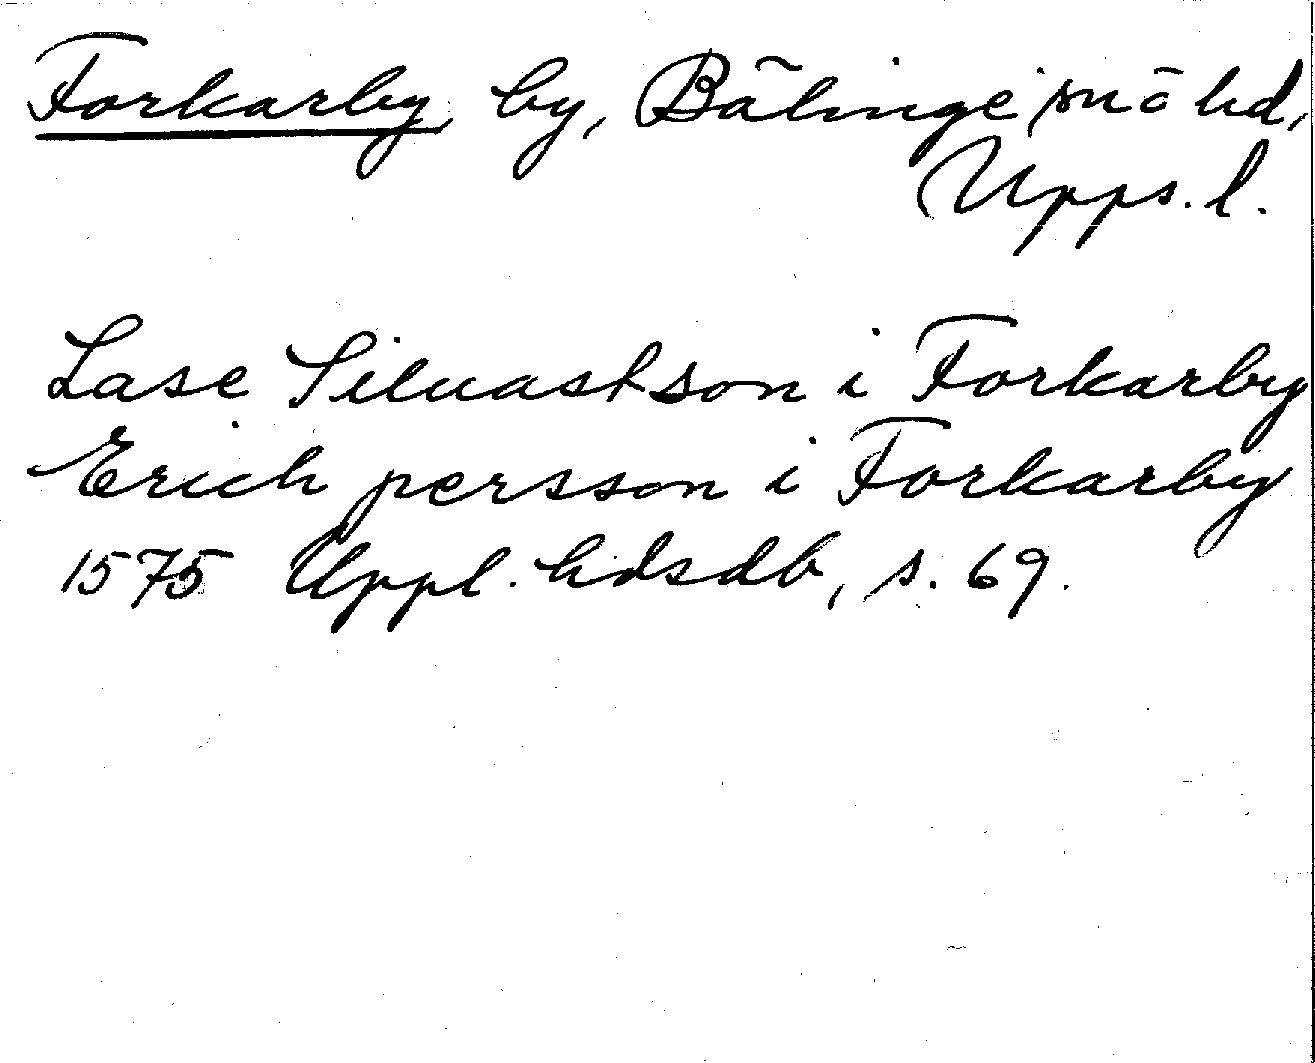 Forkarby, by, Bälinge sn ö hd,
Upps. l.
Lase Siluastson i Forkarby
Erich persson i Forkarby
1575 Uppl. hdsdb, s. 69.